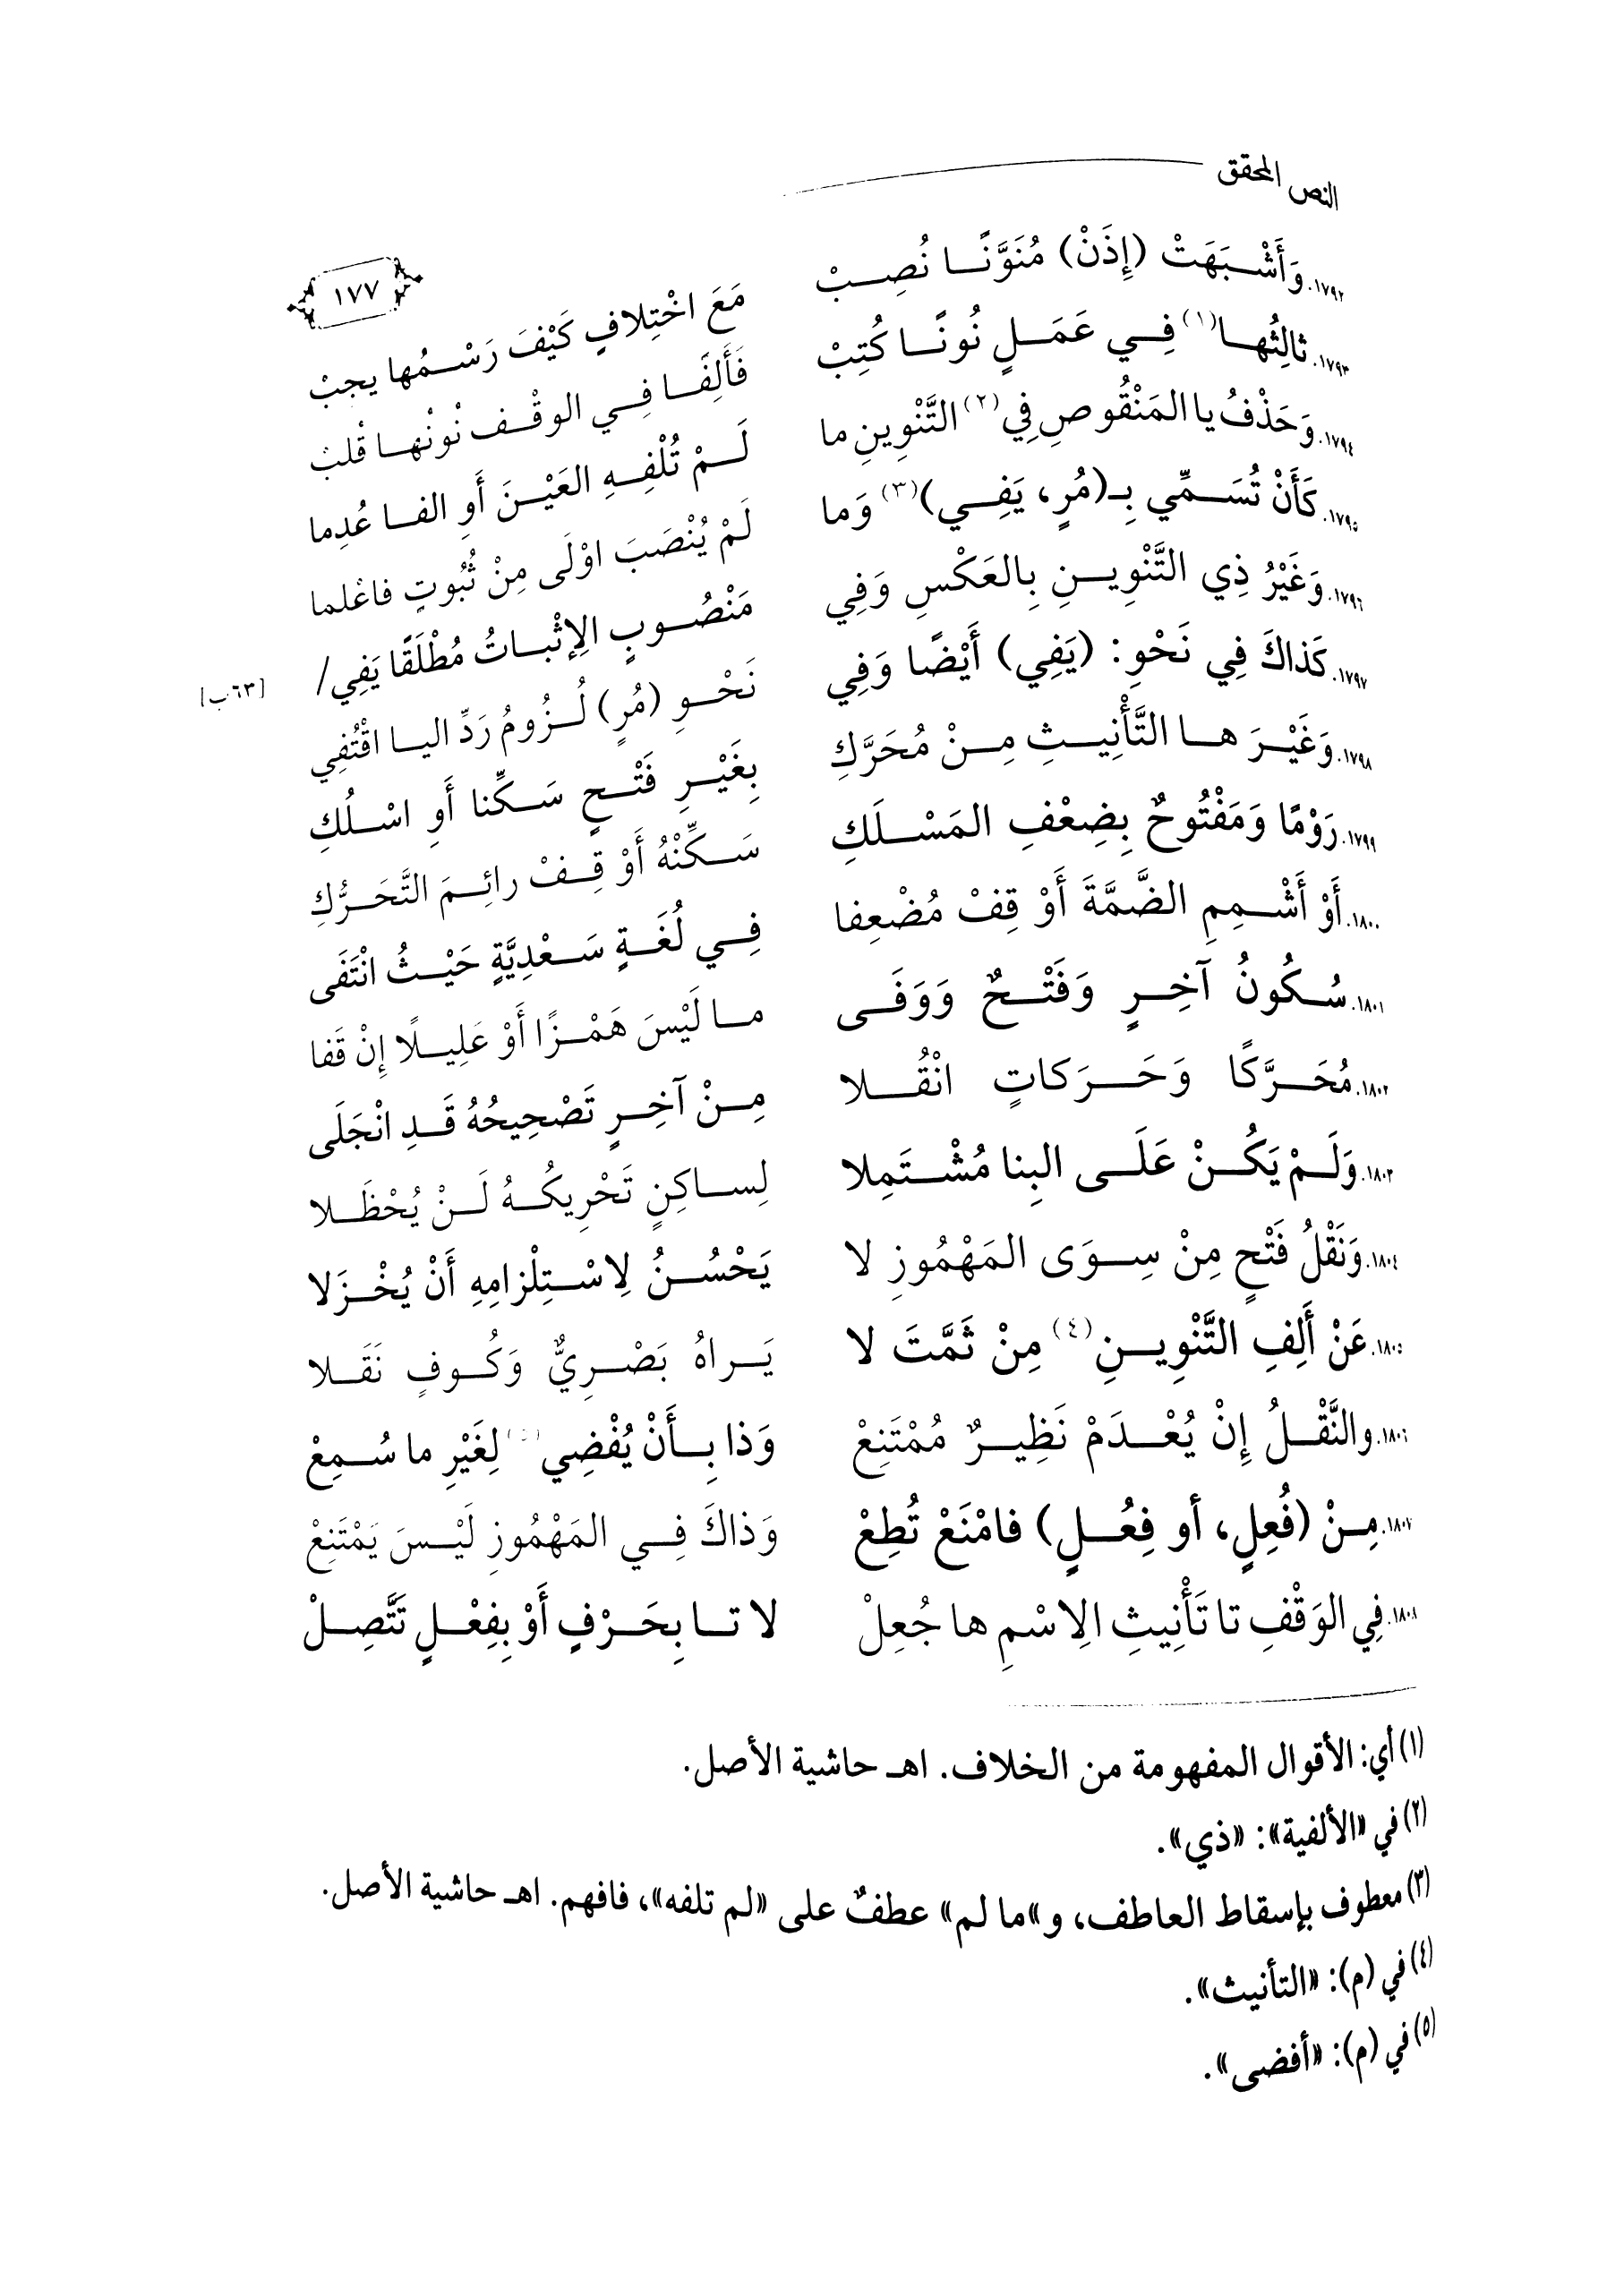 النص المحقق
١٧٧
١٧٩٢. وَأَشْبَهَتْ (إِذَنْ) مُنَوَّنًا نُصِبْ مَعَ اخْتِلافٍ كَيْفَ رَسْمُها يجبْ
١٧٩٣. ثالِثُها(١) فِي عَمَلٍ نُونًا كُتِبْ فَأَلِفًا فِي الوقْف نُونُها قُلبْ
١٧٩٤. وَحَذْفُ يا المَنْقُوصِ فِي(٢) التَّنْوِينِ ما لَمْ تُلْفِهِ العَيْنَ أَوِ الفا عُدِما
١٧٩٥. كَأَنْ تُسَمِّي بِـ(مُرٍ، يَفِي)(٣) وَما لَمْ يُنْصَبَ اوْلَى مِنْ ثُبُوتٍ فاعْلما
١٧٩٦. وَغَيْرُ ذِي التَّنْوِينِ بِالعَكْسِ وَفِي مَنْصُوبٍ الِإثْباتُ مُطْلَقًا يَفِي/
[٦٣ب]
١٧٩٧. كَذاكَ فِي نَحْوِ: (يَفِي) أَيْضًا وَفِي نَحْوِ (مُرٍ) لُزُومُ رَدِّ اليا اقْتُفِي
١٧٩٨. وَغَيْرَ ها التَّأْنِيثِ مِنْ مُحَرَّكِ بِغَيْرِ فَتْحٍ سَكِّنا أَوِ اسْلُكِ
١٧٩٩. رَوْمًا وَمَفْتُوحٌ بِضِعْفِ المَسْلَكِ سَكِّنْهُ أَوْ قِفْ رائِمَ التَّحَرُّكِ
١٨٠٠. أَوْ أَشْمِمِ الضَّمَّةَ أَوْ قِفْ مُضْعِفا فِي لُغَةٍ سَعْدِيَّةٍ حَيْثُ انْتَفَى
١٨٠١. سُكُونُ آخِرٍ وَفَتْحٌ وَوَفَى ما لَيْسَ هَمْزًا أَوْ عَلِيلًا إِنْ قَفا
١٨٠٢. مُحَرَّكًا وَحَرَكاتٍ انْقُلا مِنْ آخِرٍ تَصْحِيحُهُ قَدِ انْجَلَى
١٨٠٣. وَلَمْ يَكُنْ عَلَى البِنا مُشْتَمِلا لِساكِنٍ تَحْرِيكُهُ لَنْ يُحْظَلا
١٨٠٤. وَنَقْلُ فَتْحٍ مِنْ سِوَى المَهْمُوزِ لا يَحْسُنُ لِاسْتِلْزامِهِ أَنْ يُخْزَلا
١٨٠٥. عَنْ أَلِفِ التَّنْوِينِ(٤) مِنْ ثَمَّتَ لا يَراهُ بَصْرِيٌّ وَكُوفٍ نَقَلا
١٨٠٦. والنَّقْلُ إِنْ يُعْدَمْ نَظِيرٌ مُمْتَنِعْ وَذا بِأَنْ يُفْضِي(٥) لِغَيْرِ ما سُمِعْ
١٨٠٧. مِنْ (فُعِلٍ، أو فِعُلٍ) فامْنَعْ تُطِعْ وَذاكَ فِي المَهْمُوزِ لَيْسَ يَمْتَنِعْ
١٨٠٨. فِي الوَقْفِ تا تَأْنِيثِ الِاسْمِ ها جُعِلْ لا تا بِحَرْفٍ أَوْ بِفِعْلٍ تَتَّصِلْ
(١) أي: الأقوال المفهومة من الخلاف. اهـ حاشية الأصل.
(٢) في «الألفية»: «ذي».
(٣) معطوف بإسقاط العاطف، و»ما لم» عطفٌ على «لم تلفه»، فافهم. اهـ حاشية الأصل.
(٤) في (م): «التأنيث».
(٥) في (م): «أفضى».